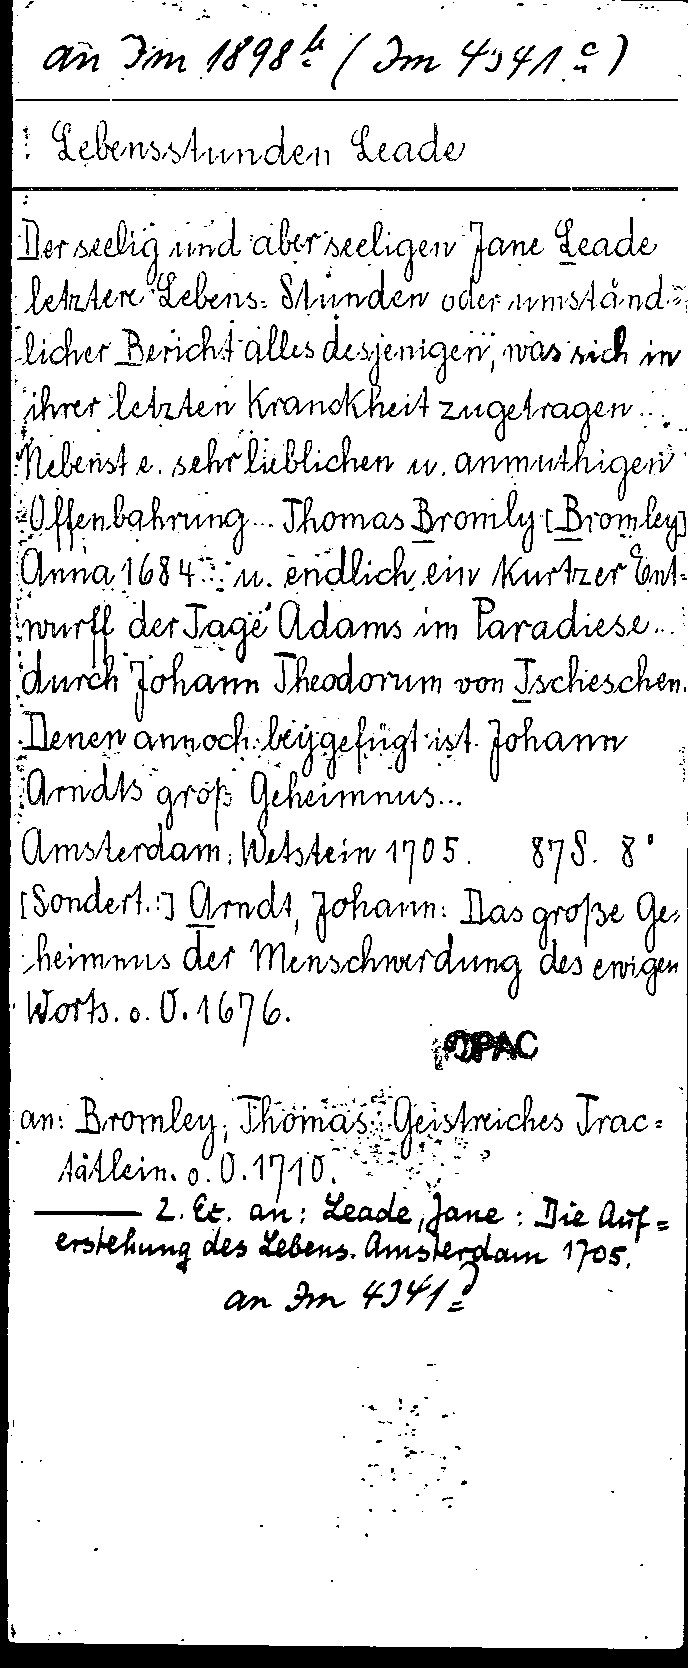 an Im 1898 b (Im 4341 c)
Lebensstunden Leade
Der seelig und aber seeligen Jane Leade
letztere Lebens-Stunden oder umständ-
licher Bericht alles desjenigen, was sich in
ihrer letzten Kranckheit zugetragen...
Nebenst e. sehr lieblichen u. anmuthigen
Offenbahrung... Thomas Bromly [Bromley]
Anna 1684... u. endlich ein kurtzer Ent-
wurff der Tage Adams im Paradiese...
durch Johann Theodorum von Tscheschen.
Denen annoch beygefügt ist Johann
Arndts groß Geheimnus...
Amsterdam: Wetstein 1705. 87 S. 8°
[Sondert.:] Arndt, Johann: Das große Ge-
heimnus der Menschwerdung des ewigen
Worts. o. O. 1676.
OPAC
an: Bromley, Thomas: Geistreiches Trac-
tätlein. o. O. 1710.
——— 2. Ex. an: Leade, Jane: Die Auf-
erstehung des Lebens. Amsterdam 1705.
an Im 4341